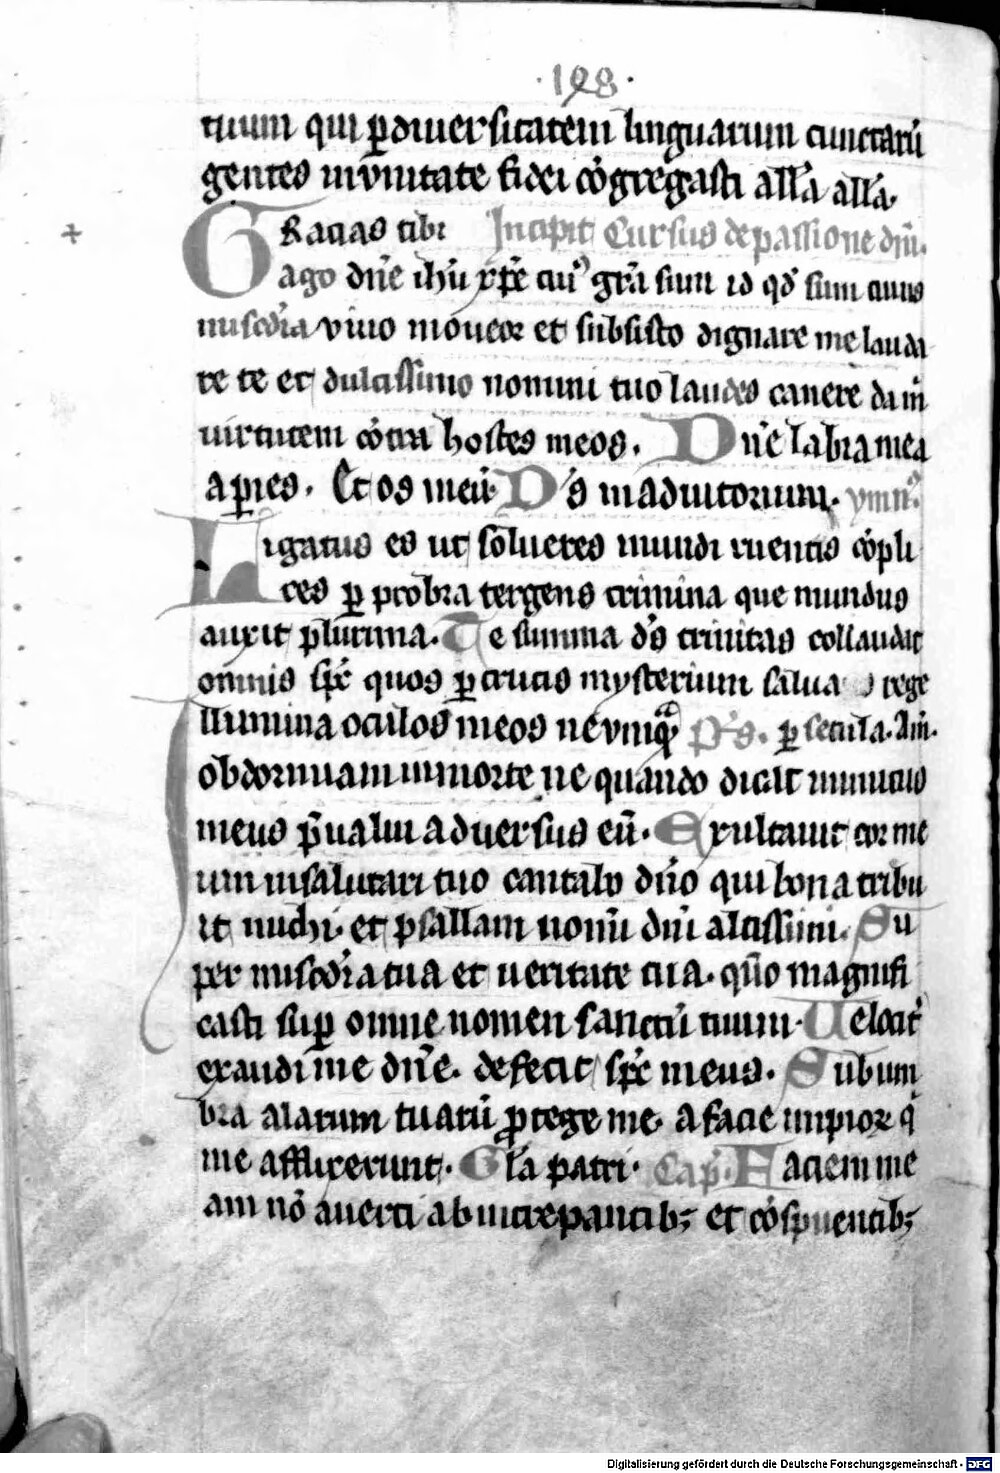 ·198·
tuum qui p̲ diuersitatem linguarum cunctarū
gentes in vnitate fidei cōgregasti all̄a all̄a·
GRacias tibi Incipit Cursus de passione dn̄i.
ago dn̄e ih̄u xp̄e cui⁹ gr̄a sum id qd̓ sum cuius
miscd̓ia viuo moueor et subsisto dignare me lauda
re te et dulcissimo nomini tuo laudes canere da m̄
uirtutem cōtra hostes meos. Dn̄e labia mea
ap̲ies. Et os meū· D̓s in adiutorium. ymn⁹.
Ligatus es ut solueres mundi ruentis cōpli
ces p̲ probra tergens crimina que mundus
auxit plurima. Te summa d̓s trinitas collaudat
omnis sp̄c quos p̲ crucis mysterium salua rege
Illumina oculos meos ne vnq̄ p̄s. p̲ secula. Am̄.
obdormiam in morte ne quando dicat inimicus
meus p̄ualui aduersus eū. Exultauit cor me
um in salutari tuo cantabo dn̄o qui bona tribu
it michi· et psallam nomī dn̄i altissimi. Su
per miscd̓ia tua et ueritate tua. qm̄o magnifi
casti sup̲ omne nomen sanctū tuum. Uelocit̓
exaudi me dn̄e. defecit sp̄c meus. Sub um
bra alarum tuarū protege me· a facie impior q̄
me afflixerunt. Gl̄a patri. Cap̄. Faciem me
am nō auerti ab increpantib; et cōspuentib;
Digitalisierung gefördert durch die Deutsche Forschungsgemeinschaft - DFG